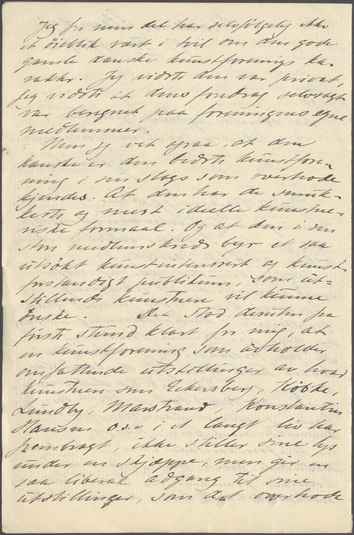 Jeg for min del har selvfølgelig ikke
et øieblik vært i tvil om den gode
gamle danske kunstforenings ka-
rakter. Jeg vidste den var privat,
jeg vidste at dens foredrag selvsagt
var beregnet paa foreningens egne
medlemmer.
Men jeg vet ogsaa, at den
danske er den bedste kunstfore-
ning i sit slags som overhode
kjendes. At den har de smuk-
keste og mest ideelle kunstne-
riske formaal. Og at den i sin
stor medlemskreds byr et saa
utsøkt kunstinteressert og kunst-
forstandigt publikum, som ut-
stillende kunstnere vil kunne
ønske. Det stod derfor fra
første stund klart for mig, at
en kunstforening som avholder
omfattende utstillinger av hvad
kunstnere som Eckersberg, Købke,
Lundby, Marstrand, Konstantin
Hansen o.s.v. i et langt liv har
frembragt, ikke stiller sine lys
under en skjæppe, men gir en
saa liberal adgang til sine
utstillinger, som det overhode